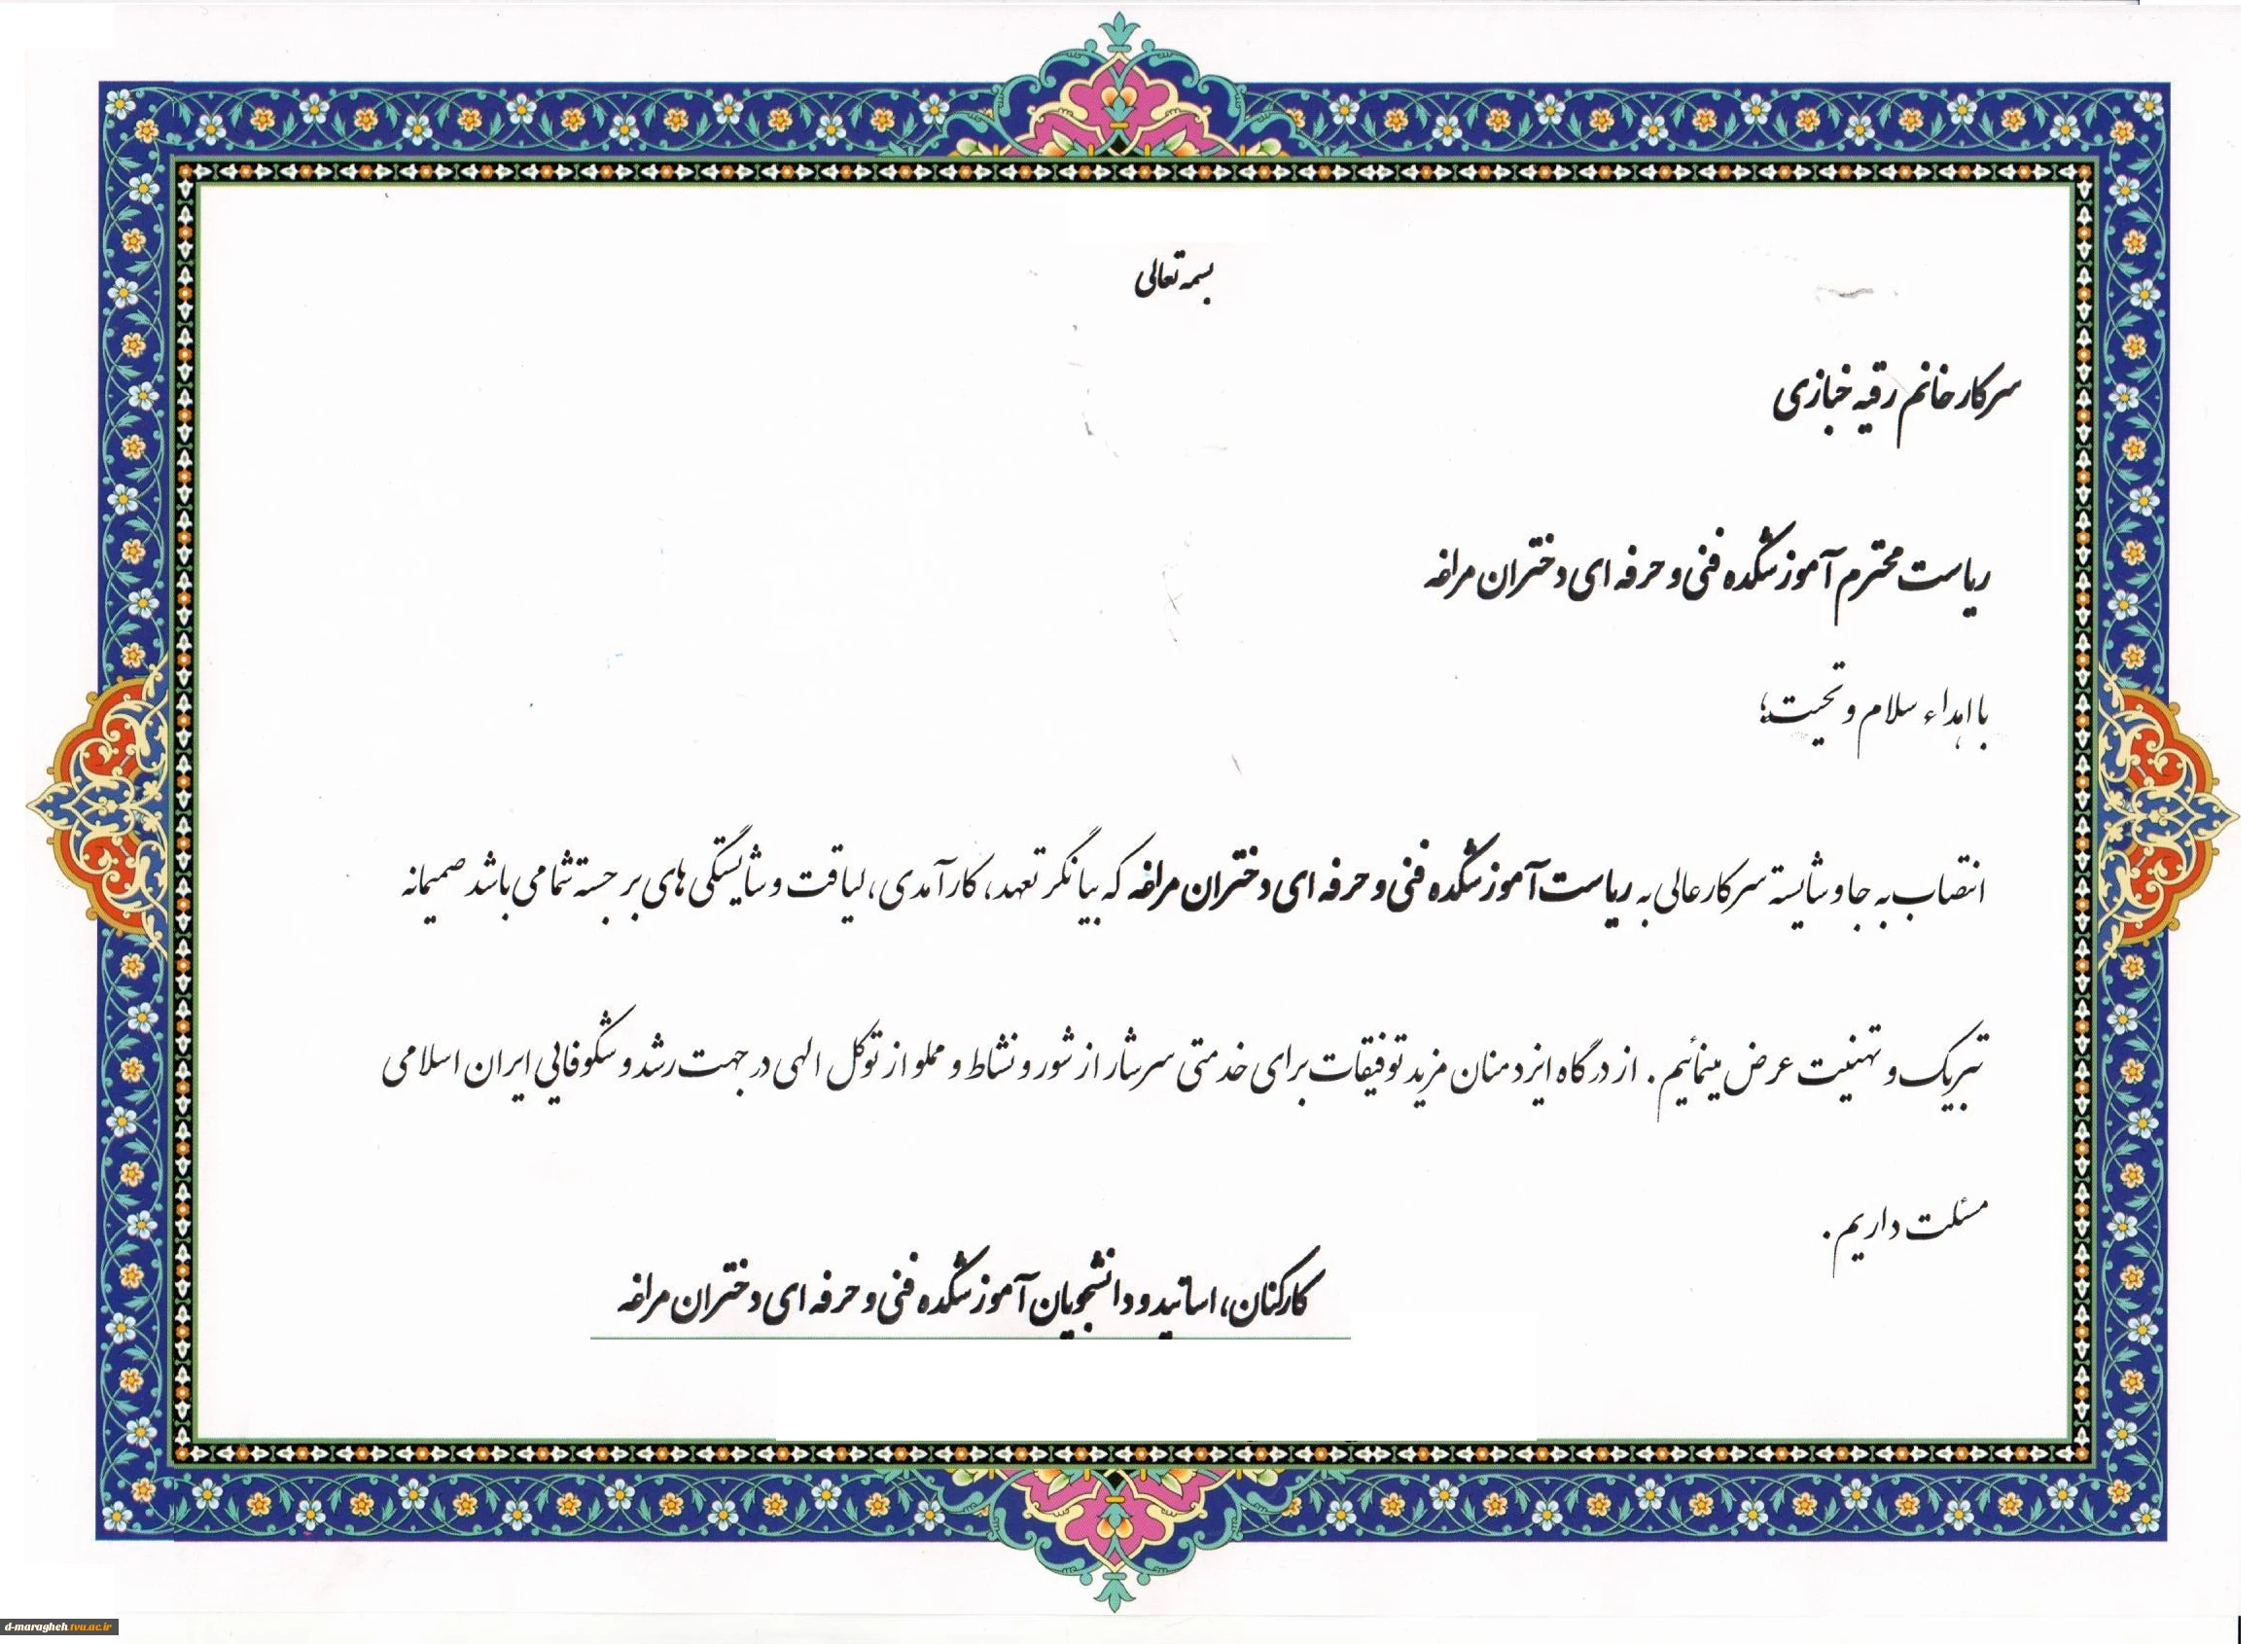 بسمه تعالی
سرکار خانم رقیه خبازی
ریاست محترم آموزشکده فنی و حرفه ای دختران مراغه
با اهداء سلام و تحیت؛
انتصاب به جا و شایسته سرکار عالی به ریاست آموزشکده فنی و حرفه ای دختران مراغه که بیانگر تعهد، کارآمدی، لیاقت و شایستگی های برجسته شما می باشد صمیمانه
تبریک و تهنیت عرض مینمائیم. از درگاه ایزد منان مزید توفیقات برای خدمتی سرشار از شور و نشاط و مملو از توکل الهی در جهت رشد و شکوفایی ایران اسلامی
مسئلت داریم.
کارکنان، اساتید و دانشجویان آموزشکده فنی و حرفه ای دختران مراغه
d-maragheh.tvu.ac.ir